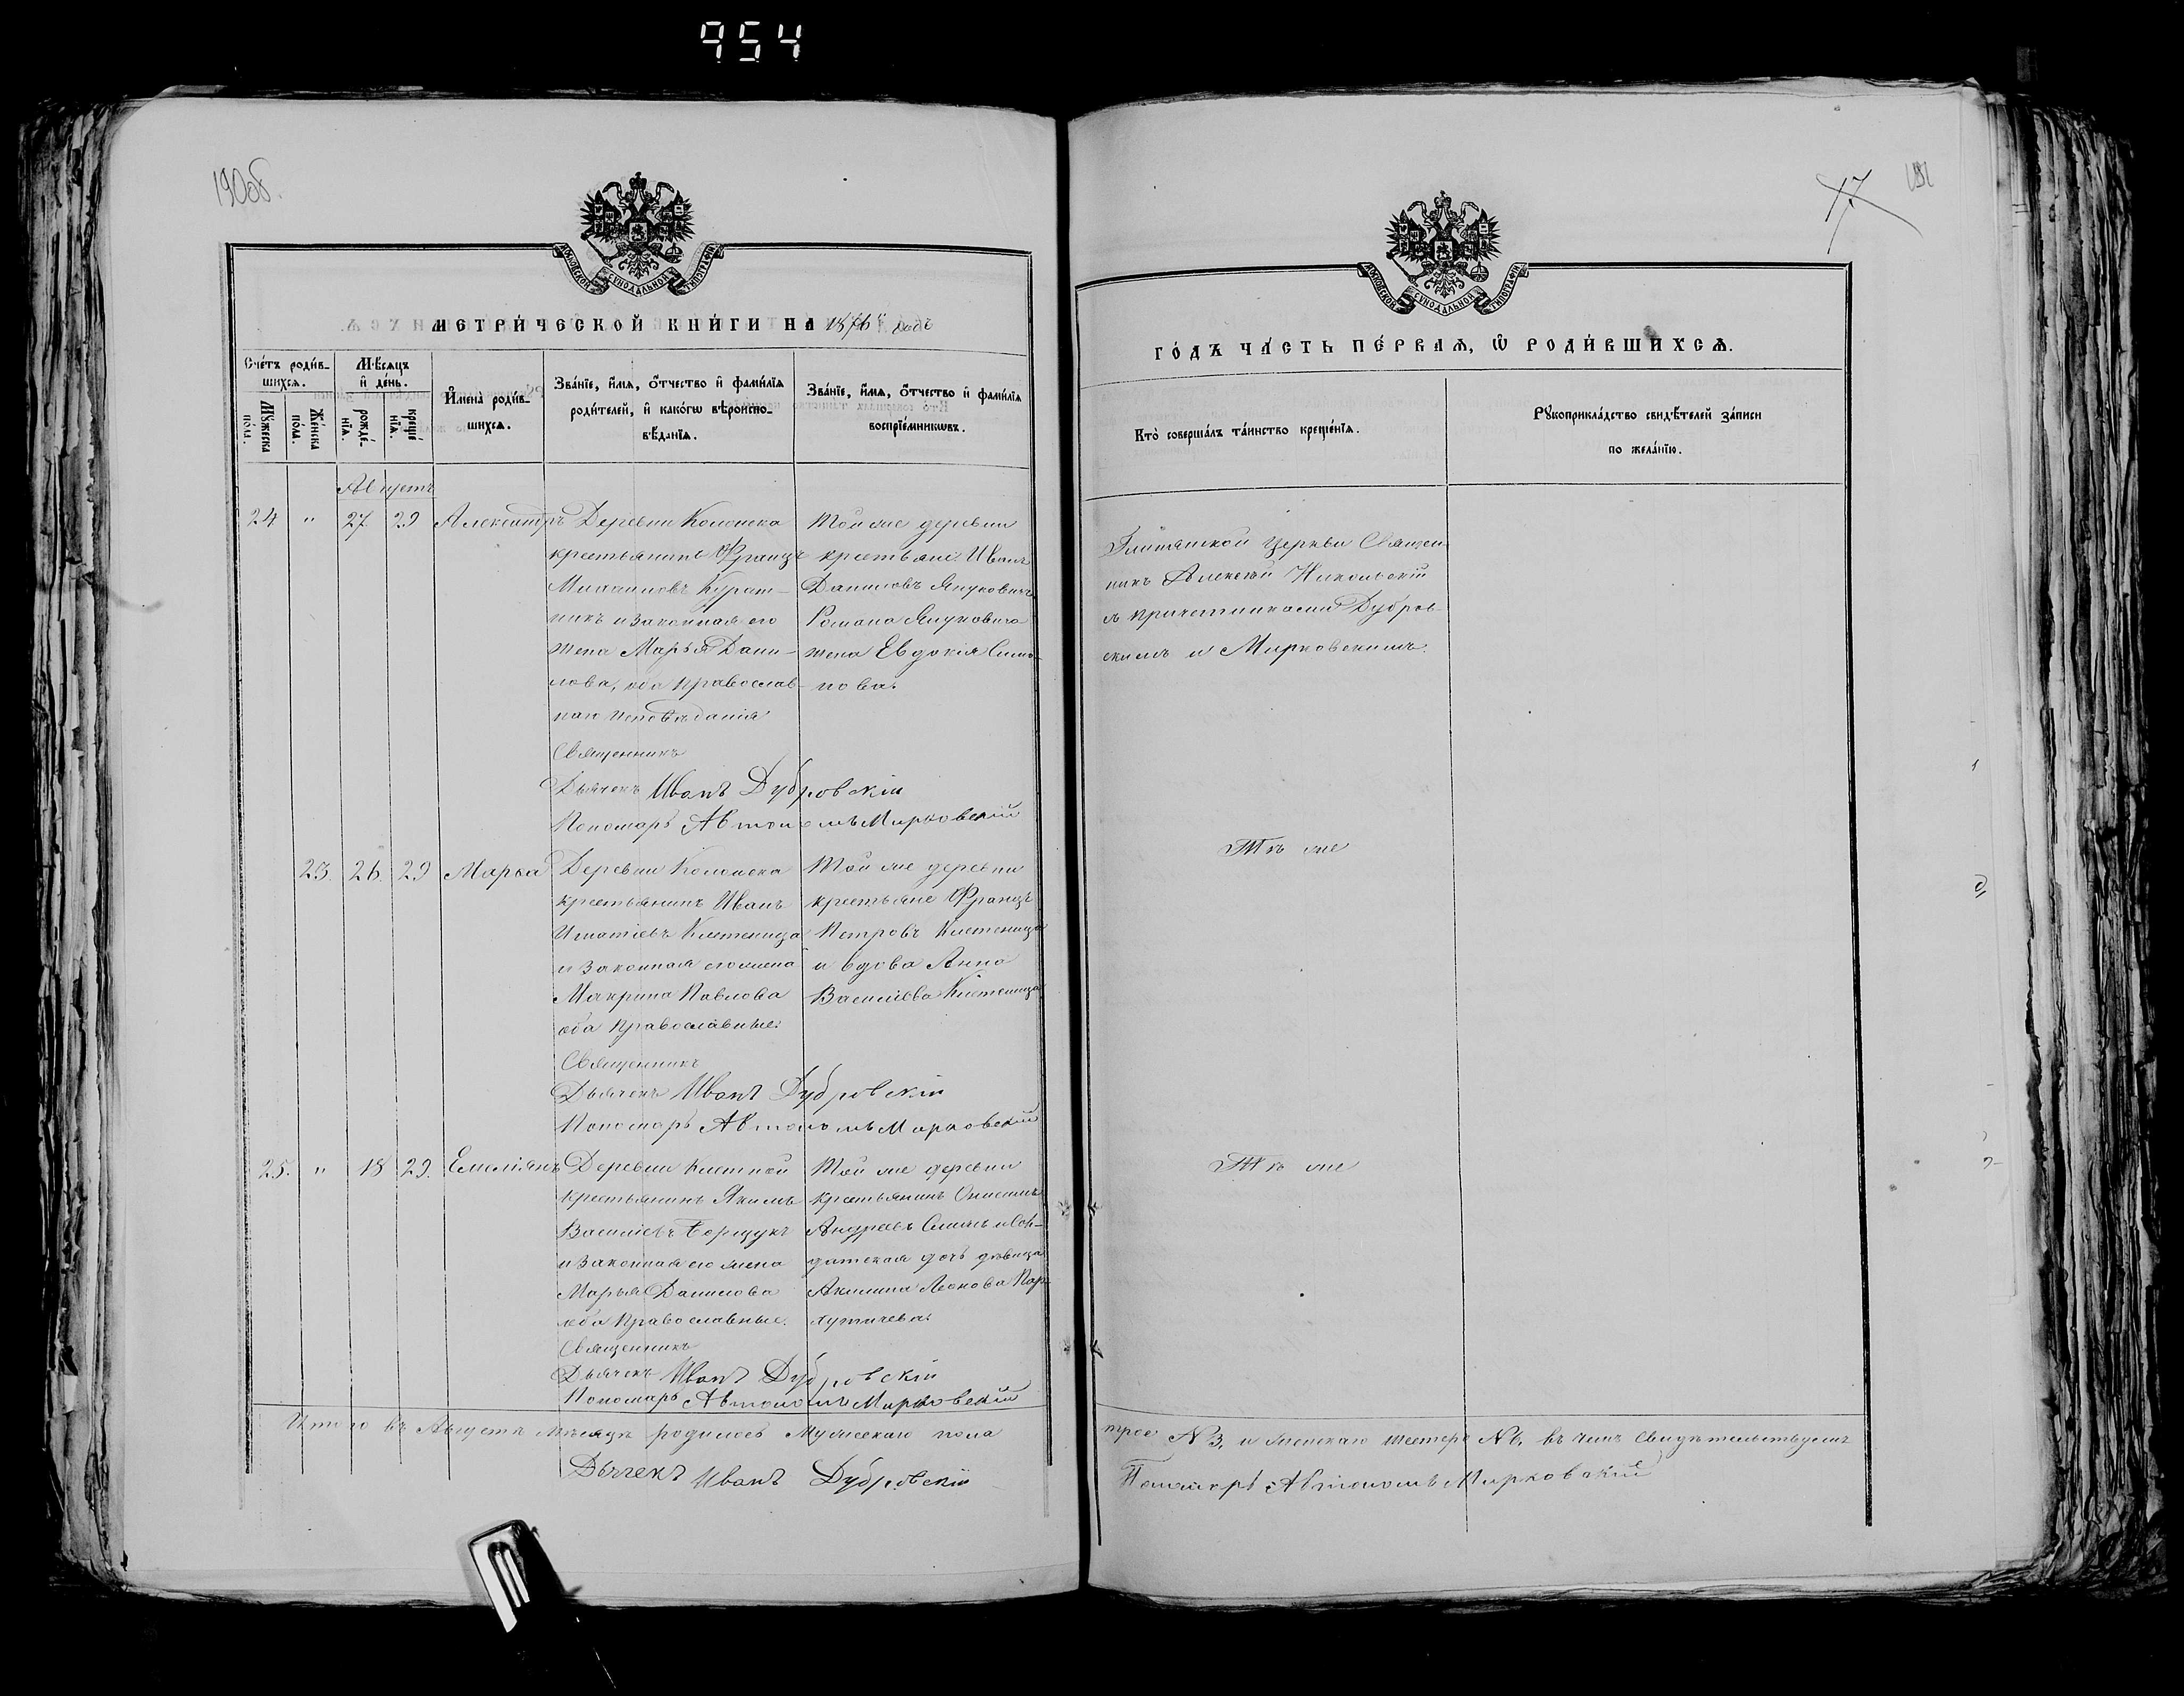 954
190об.
17
191
МОСКОВСКОЙ СУНОДАЛЬНОЙ ТИПОГРАФІИ
МЕТРИ́ЧЕСКОЙ КНИ́ГИ НА 1876й годъ
Сче́тъ роди́в-
шихсѧ.
Мꙋ́жеска по́ла.
Же́нска по́ла.
Мѣ́сѧцъ
и҆ де́нь.
рожде́-
нїѧ.
креще́
нїѧ.
И҆мена̀ роди́в-
шихсѧ.
Зва́нїе, и҆́мѧ, ѻ҆́тчество и҆ фами́лїѧ
роди́телей, и҆ како́гѡ вѣроиспо-
вѣ́данїѧ.
Зва́нїе, и҆́мѧ, ѻ҆́тчество и҆ фами́лїѧ
воспрїе́мникѡвъ.
Августъ
24 " 27 29 Александръ
Деревни Колонска
крестьянинъ Францъ
никъ и законная его
жена Марья Дани-
лова, оба православ-
наго исповѣданія
Той же деревни
крестьяне: Иванъ
Даниловъ Януковичъ
Романа Януковича
жена Евдокія Симо-
нова.
Священникъ
Дьячекъ Иванъ Дубровскій
Пономарь Автономъ Мирковскій
23. 26. 29 Марья
Деревни Колонска
крестьянинъ Иванъ
Игнатіевъ Клетеница
и законная его жена
Макрина Павлова
оба Православные.
Той же деревни
крестьяне Францъ
Петровъ Клетеница
и вдова Анна
Василіева Клетеница
Священникъ
Дьячекъ Иванъ Дубровскій
Пономарь Автономъ Мирковскій
25. " 18 29. Емеліянъ
Деревни Клетной
крестьянинъ Якимъ
Василіевъ Борщукъ
и законная его жена
Марья Данилова
оба Православные.
Той же деревни
крестьянинъ
Андреевъ и Сол-
датская дочь дѣвица
Акилина Леонова
Священникъ
Дьячекъ Иванъ Дубровскій
Пономарь Автономъ Мирковскій
Итого въ Августѣ мѣсяцѣ родилось Мужескаго пола
Дьячекъ Иванъ Дубровскій
МОСКОВСКОЙ СУНОДАЛЬНОЙ ТИПОГРАФІИ
ГО́ДЪ ЧА́СТЬ ПЕ́РВАѦ, Ѡ҆ РОДИ́ВШИХСѦ.
Кто̀ соверша́лъ та́инство креще́нїѧ.
Рꙋкоприкла́дство свидѣ́телей за́писи
по жела́нїю.
церкви Священ-
никъ Алексѣй Никольскій
съ причетниками Дубров-
скимъ и Мирковскимъ.
Тѣ же
Тѣ же
трое №3, и женскаго шестеро №6, въ чемъ свидѣтельствуемъ
Пономарь Автономъ Мирковскій